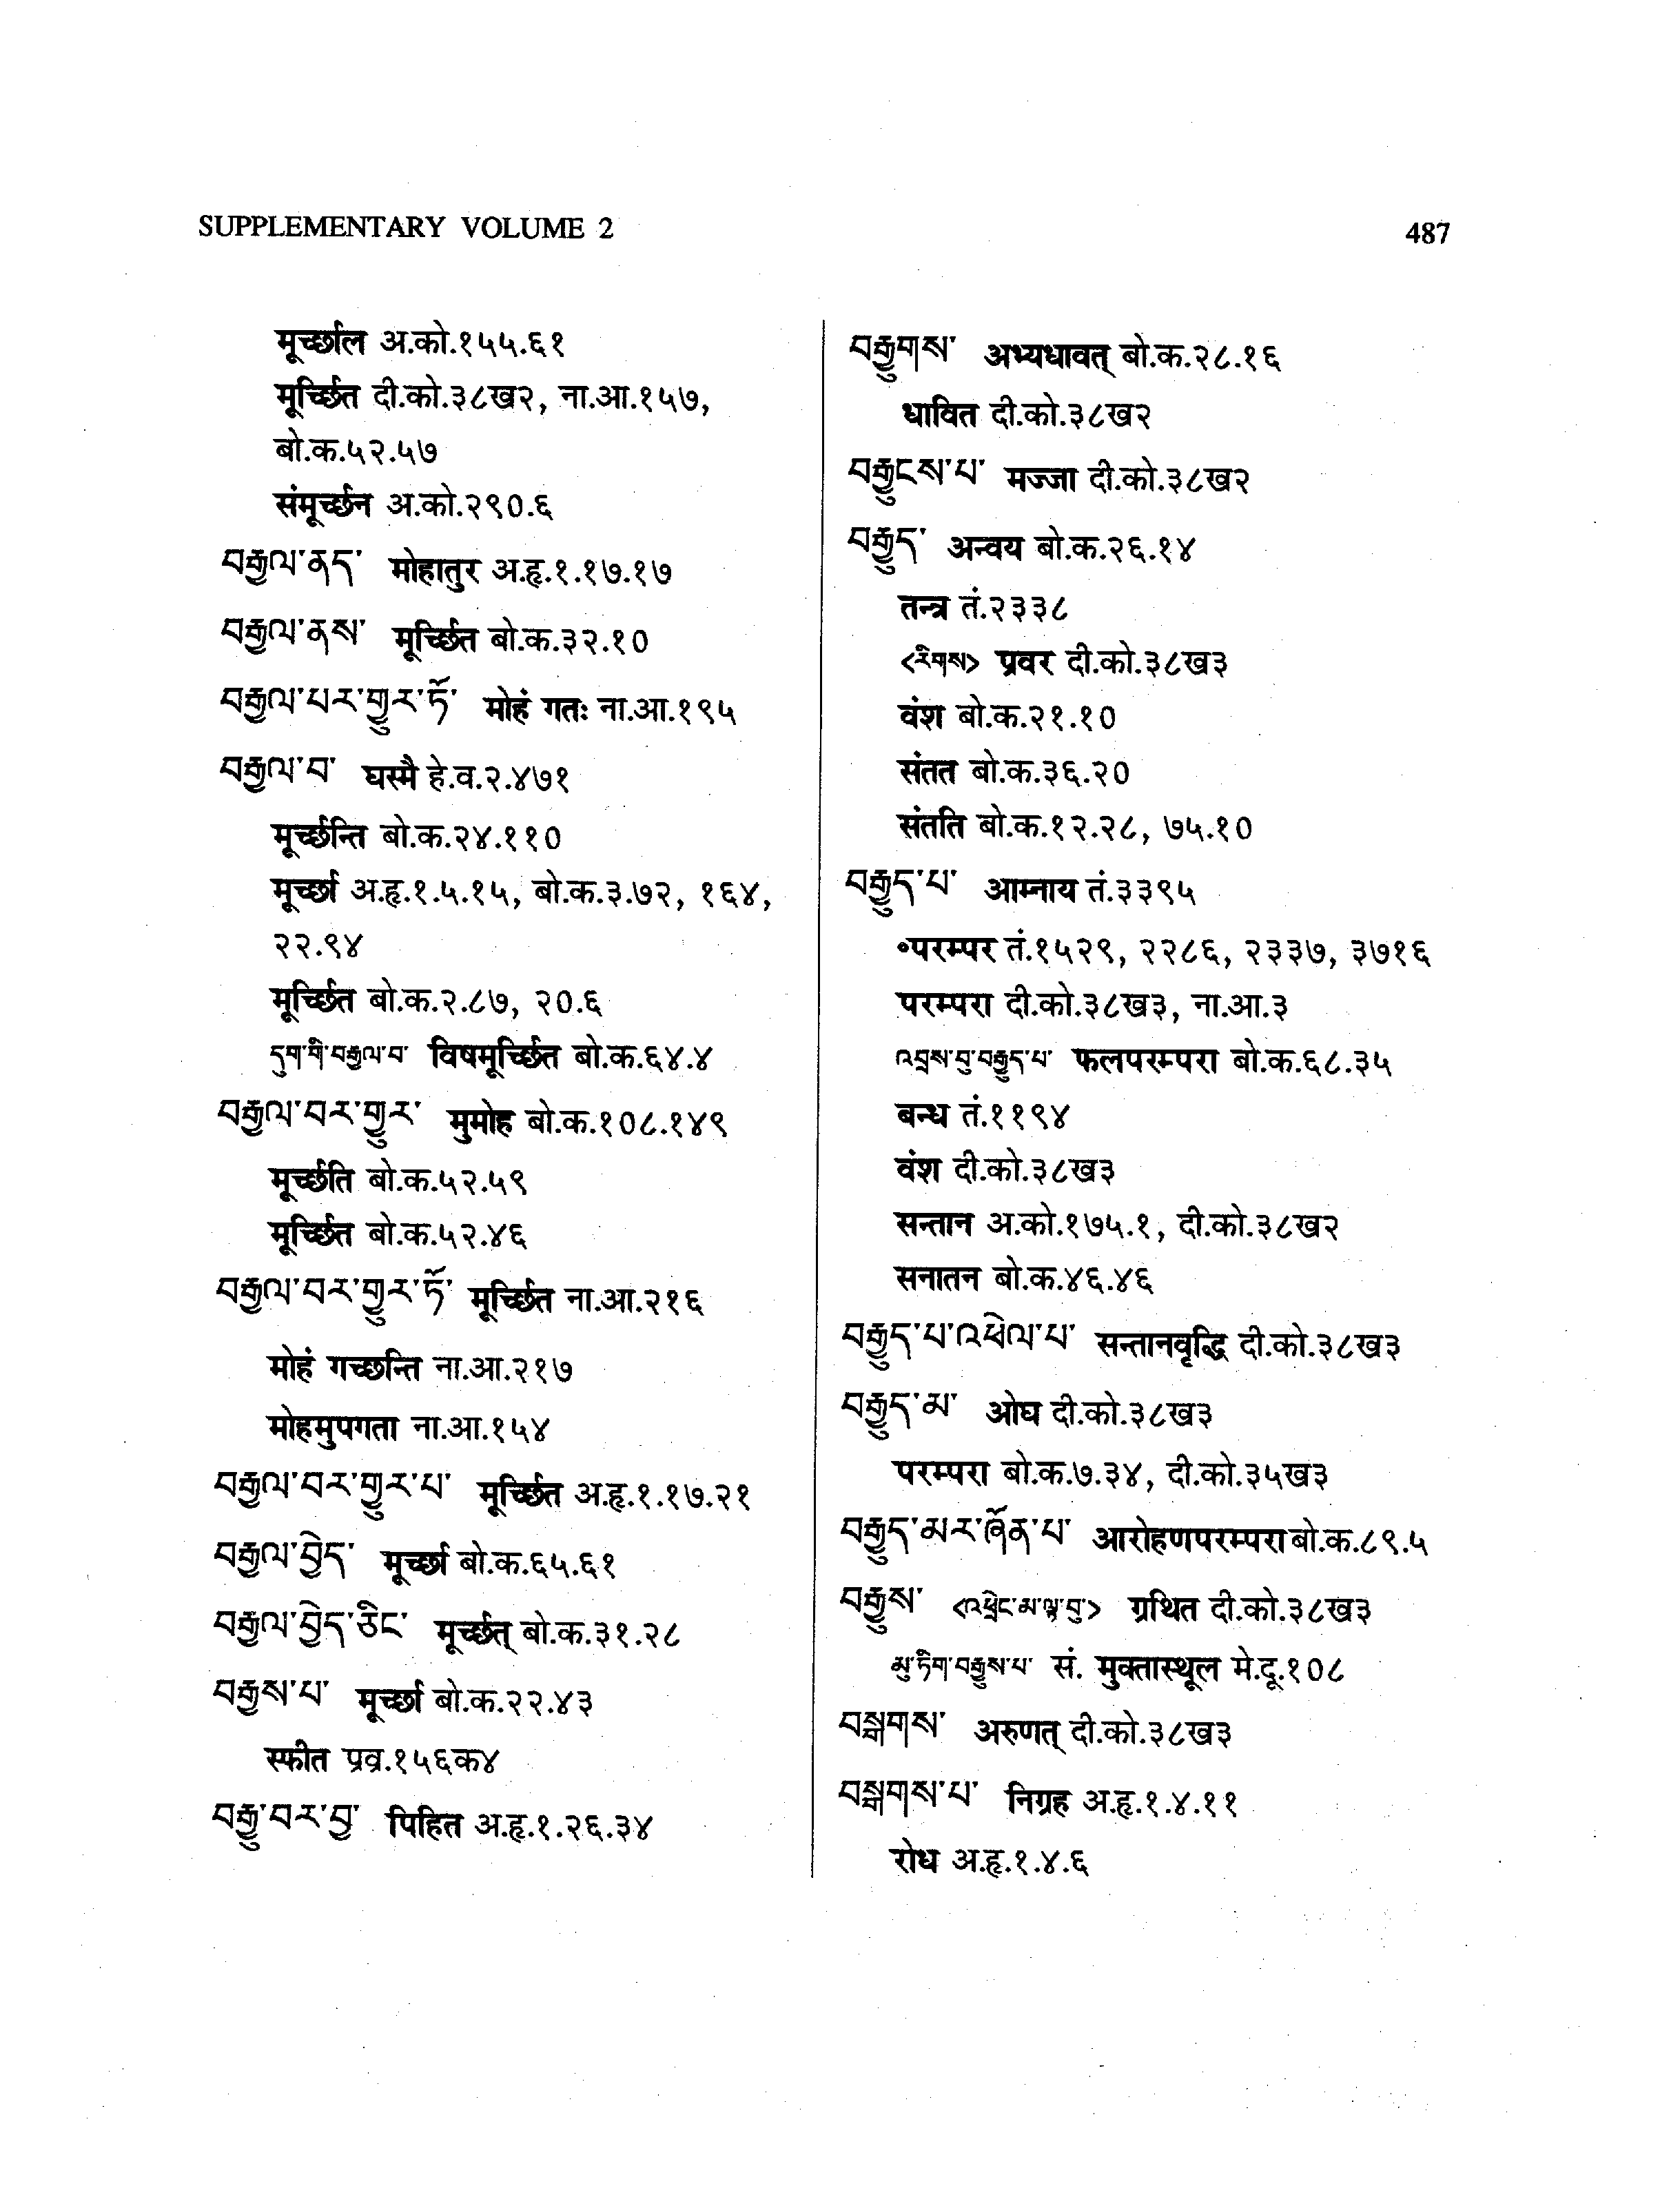 SUPPLEMENTARY VOLUME 2
487
मूर्च्छाल अ.को.१५५.६१
मूर्च्छित दी.को.३८ख२, ना.आ.१५७,
बो.क.५२.५७
संमूर्च्छन अ.को.२९०.६
བརྒྱལ་ནད་ मोहातुर अ.हृ.१.१७.१७
བརྒྱལ་ནས་ मूर्च्छित बो.क.३२.१०
བརྒྱལ་པར་གྱུར་ཏོ་ मोहं गतः ना.आ.१९५
བརྒྱལ་བ་ घस्मै हे.व.२.४७१
मूर्च्छन्ति बो.क.२४.११०
मूर्च्छा अ.हृ.१.५.१५, बो.क.३.७२, १६४,
२२.९४
मूर्च्छित बो.क.२.८७, २०.६
དུག་གི་བརྒྱལ་བ་ विषमूर्च्छित बो.क.६४.४
བརྒྱལ་བར་གྱུར་ मुमोह बो.क.१०८.१४९
मूर्च्छति बो.क.५२.५९
मूर्च्छित बो.क.५२.४६
བརྒྱལ་བར་གྱུར་ཏོ་ मूर्च्छित ना.आ.२१६
मोहं गच्छन्ति ना.आ.२१७
मोहमुपगता ना.आ.१५४
བརྒྱལ་བར་གྱུར་པ་ मूर्च्छित अ.हृ.१.१७.२१
བརྒྱལ་བྱེད་ मूर्च्छा बो.क.६५.६१
བརྒྱལ་བྱེད་ཅིང་ मूर्च्छत् बो.क.३१.२८
བརྒྱས་པ་ मूर्च्छा बो.क.२२.४३
स्फीत प्रव्र.१५६क४
བརྒྱུ་བར་བྱ་ पिहित अ.हृ.१.२६.३४
བརྒྱུགས་ अभ्यधावत् बो.क.२८.१६
धावित दी.को.३८ख२
བརྒྱུངས་པ་ मज्जा दी.को.३८ख२
བརྒྱུད་ अन्वय बो.क.२६.१४
तन्त्र तं.२३३८
<རིགས> प्रवर दी.को.३८ख३
वंश बो.क.२१.१०
संतत बो.क.३६.२०
संतति बो.क.१२.२८, ७५.१०
བརྒྱུད་པ་ आम्नाय तं.३३९५
॰परम्पर तं.१५२९, २२८६, २३३७, ३७१६
परम्परा दी.को.३८ख३, ना.आ.३
འབྲས་བུ་བརྒྱུད་པ་ फलपरम्परा बो.क.६८.३५
बन्ध तं.११९४
वंश दी.को.३८ख३
सन्तान अ.को.१७५.१, दी.को.३८ख२
सनातन बो.क.४६.४६
བརྒྱུད་པ་འཕེལ་པ་ सन्तानवृद्धि दी.को.३८ख३
བརྒྱུད་མ་ ओघ दी.को.३८ख३
परम्परा बो.क.७.३४, दी.को.३५ख३
བརྒྱུད་མར་ཞོན་པ་ आरोहणपरम्परा बो.क.८९.५
བརྒྱུས་ <འཕྲེང་མ་ལྟ་བུ་> ग्रथित दी.को.३८ख३
མུ་ཏིག་བརྒྱུས་པ་ सं. मुक्तास्थूल मे.दू.१०८
བསྒགས་ अरुणत् दी.को.३८ख३
བསྒགས་པ་ निग्रह अ.हृ.१.४.११
रोध अ.हृ.१.४.६